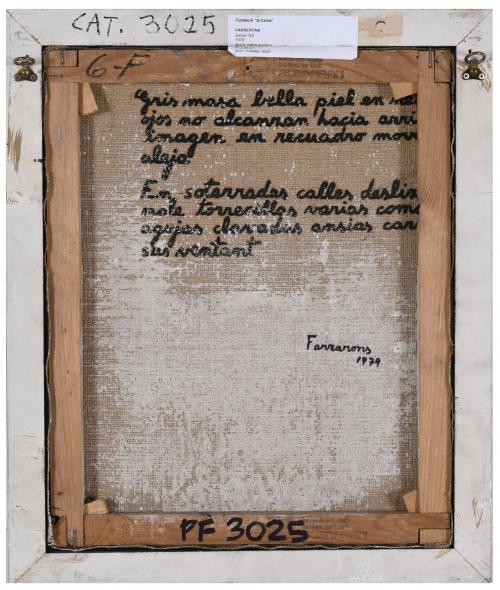 CAT. 3025
Fundació "la Caixa"
FARRERONS
1979
6-F
"Gris masa bella piel en
ojos no alcanzan hacia arri
imagen en recuadro mov
aleja
En soterradas calles deslin
mole torrecillas varias como
agujas clavadas ansias car
sus ventant
Farrarons
1979
PF 3025